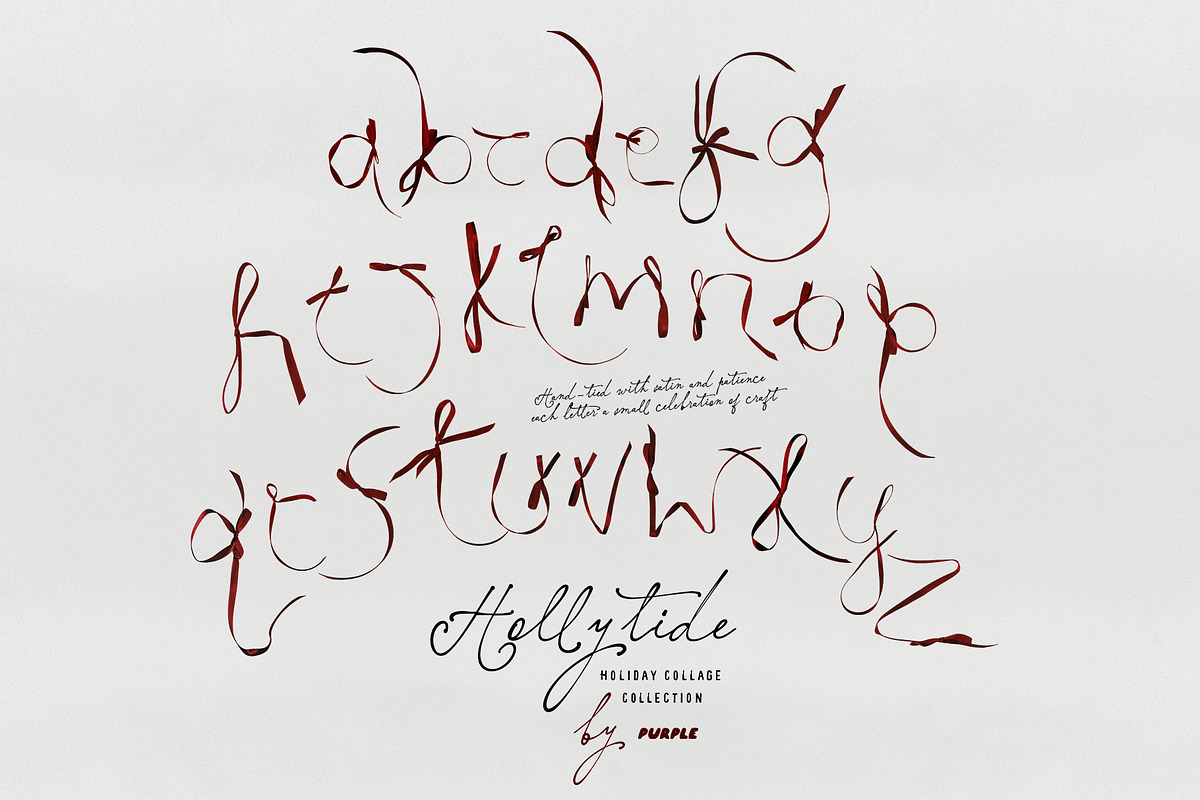 abcdefg
hijklmnop
Hand-tied with satin and patience
each letter a small celebration of craft
qrstuvwxyz
Hollytide
HOLIDAY COLLAGE
COLLECTION
by PURPLE